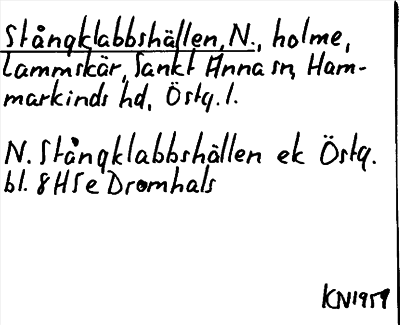 Stångklabbshällen, N., holme,
Lammskär, Sankt Anna sn, Ham-
markinds hd, Östg. l.
N. Stångklabbshällen ek Östg.
bl. 8H5e Dromhals
KN1959